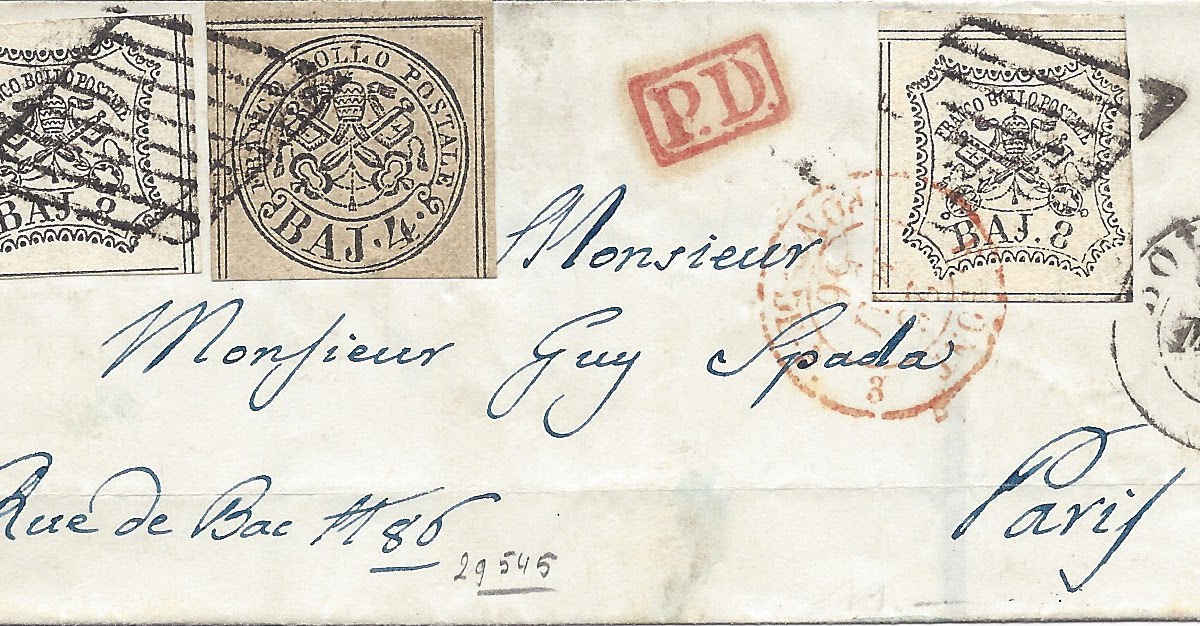 FRANCO BOLLO POSTALE
BAJ. 8
FRANCO BOLLO POSTALE
BAJ. 4
P.D.
FRANCO BOLLO POSTALE
BAJ. 8
Monsieur
Monsieur Guy Spada
8
Rue de Bac N 86
29545
Paris